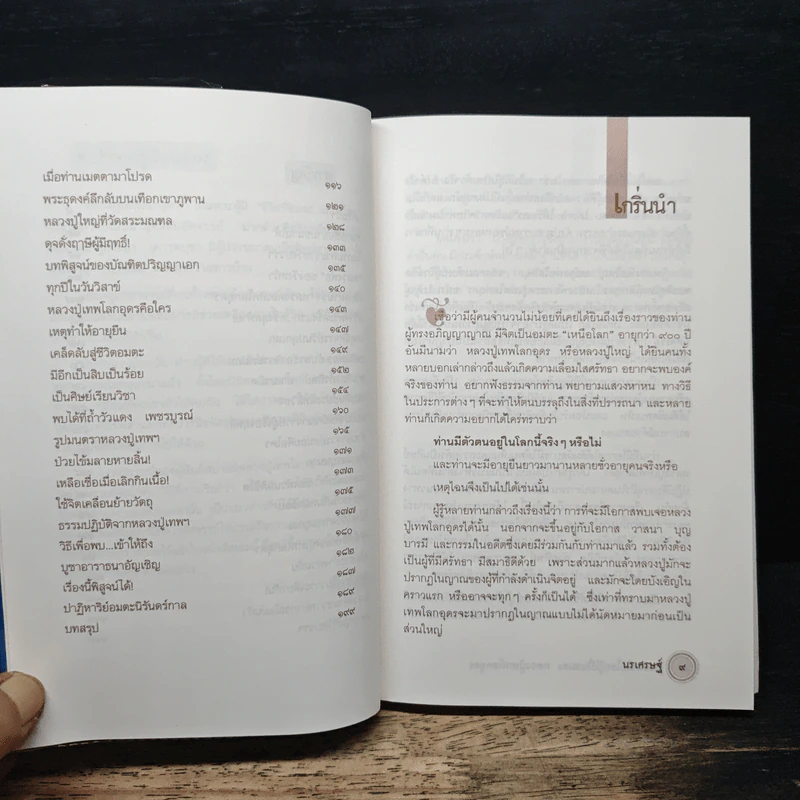 เมื่อท่านเมตตามาโปรด ๑๑๖
พระธุดงค์ลึกลับบนเทือกเขาภูพาน ๑๒๑
หลวงปู่ใหญ่ที่วัดสระมณฑล ๑๒๘
ดุจดั่งฤาษีผู้มีฤทธิ์! ๑๓๓
บทพิสูจน์ของบัณฑิตปริญญาเอก ๑๓๕
ทุกปีในวันวิสาข์ ๑๔๐
หลวงปู่เทพโลกอุดรคือใคร ๑๔๓
เหตุทำให้อายุยืน ๑๔๗
เคล็ดลับสู่ชีวิตอมตะ ๑๔๙
มีอีกเป็นสิบเป็นร้อย ๑๕๒
เป็นศิษย์เรียนวิชา ๑๕๔
พบได้ที่ถ้ำวัวแดง เพชรบูรณ์ ๑๖๐
รูปมนตราหลวงปู่เทพฯ ๑๖๕
ป่วยไข้มลายหายสิ้น! ๑๗๑
เหลือเชื่อเมื่อเลิกกินเนื้อ! ๑๗๓
ใช้จิตเคลื่อนย้ายวัตถุ ๑๗๕
ธรรมปฏิบัติจากหลวงปู่เทพฯ ๑๗๗
วิธีเพื่อพบ...เข้าให้ถึง ๑๘๐
บูชาอาราธนาอัญเชิญ ๑๘๒
เรื่องนี้พิสูจน์ได้! ๑๘๗
ปาฏิหาริย์อมตะนิรันดร์กาล ๑๘๙
บทสรุป ๑๙๙
เกริ่นนำ
เชื่อว่ามีผู้คนจำนวนไม่น้อยที่เคยได้ยินถึงเรื่องราวของท่าน
ผู้ทรงอภิญญาญาณ มีจิตเป็นอมตะ “เหนือโลก” อายุกว่า ๙๐๐ ปี
อันมีนามว่า หลวงปู่เทพโลกอุดร หรือหลวงปู่ใหญ่ ได้ยินคนทั้ง
หลายบอกเล่ากล่าวถึงแล้วเกิดความเลื่อมใสศรัทธา อยากจะพบองค์
จริงของท่าน อยากฟังธรรมจากท่าน พยายามแสวงหาหน ทางวิธี
ในประการต่างๆ ที่จะทำให้ตนบรรลุถึงในสิ่งที่ปรารถนา และหลาย
ท่านก็เกิดความอยากได้ใคร่ทราบว่า
ท่านมีตัวตนอยู่ในโลกนี้จริงๆ หรือไม่
และท่านจะมีอายุยืนยาวมานานหลายชั่วอายุคนจริงหรือ
เหตุไฉนจึงเป็นไปได้เช่นนั้น
ผู้รู้หลายท่านกล่าวถึงเรื่องนี้ว่า การที่จะมีโอกาสพบเจอหลวง
ปู่เทพโลกอุดรได้นั้น นอกจากจะขึ้นอยู่กับโอกาส วาสนา บุญ
บารมี และกรรมในอดีตซึ่งเคยมีร่วมกันกับท่านมาแล้ว รวมทั้งต้อง
เป็นผู้ที่มีศรัทธา มีสมาธิดีด้วย เพราะส่วนมากแล้วหลวงปู่มักจะ
ปรากฏในญาณของผู้ที่กำลังดำเนินจิตอยู่ และมักจะโดยบังเอิญใน
คราวแรก หรืออาจจะทุกๆ ครั้งก็เป็นได้ ซึ่งเท่าที่ทราบมาหลวงปู่
เทพโลกอุดรจะมาปรากฏในญาณแบบไม่ได้นัดหมายมาก่อนเป็น
ส่วนใหญ่
นรเศรษฐ์ ๙